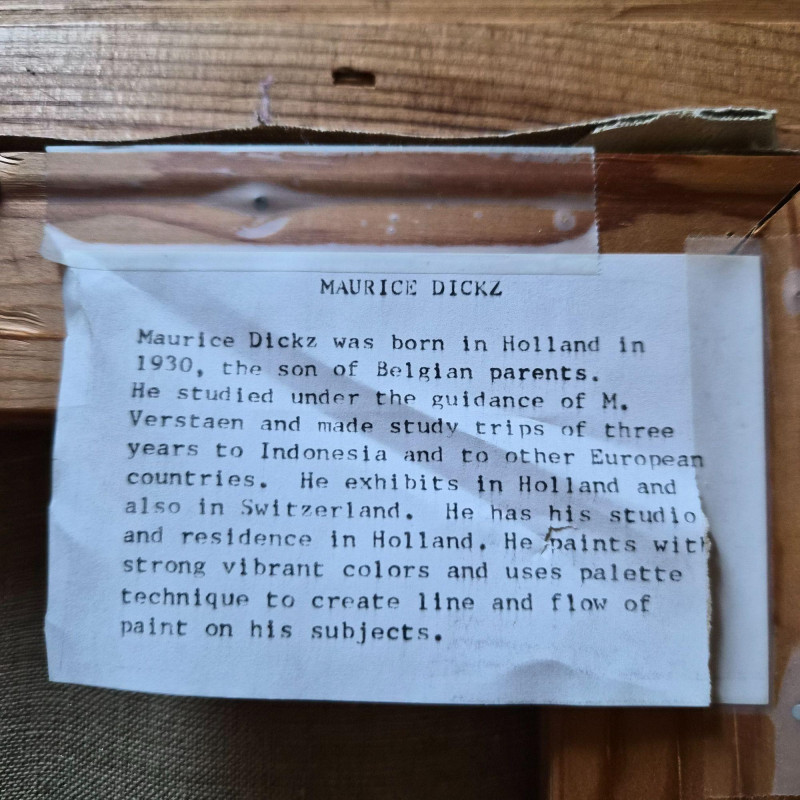 MAURICE DICKZ
Maurice Dickz was born in Holland in
1930, the son of Belgian parents.
He studied under the guidance of M.
Verstaen and made study trips of three
years to Indonesia and to other European
countries. He exhibits in Holland and
also in Switzerland. He has his studio
and residence in Holland. He paints with
strong vibrant colors and uses palette
technique to create line and flow of
paint on his subjects.